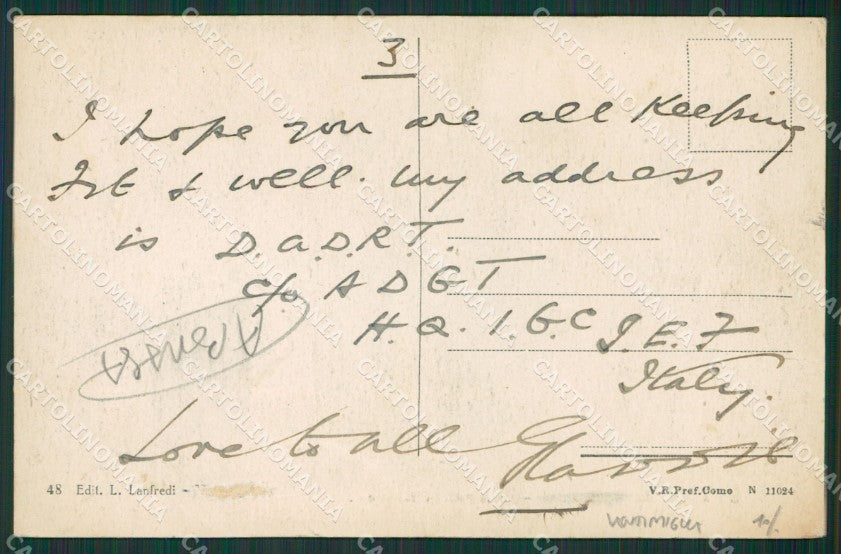 3
I hope you are all keeping
Fit & well. my address
is D.A.D.R.T.
c/o A D G T
H.Q. I.G.C I.E.F
Italy.
Love to all
48 Edit. L. Lanfredi -
V.R.Pref.Como N 11024
CARTOLINOMANIA